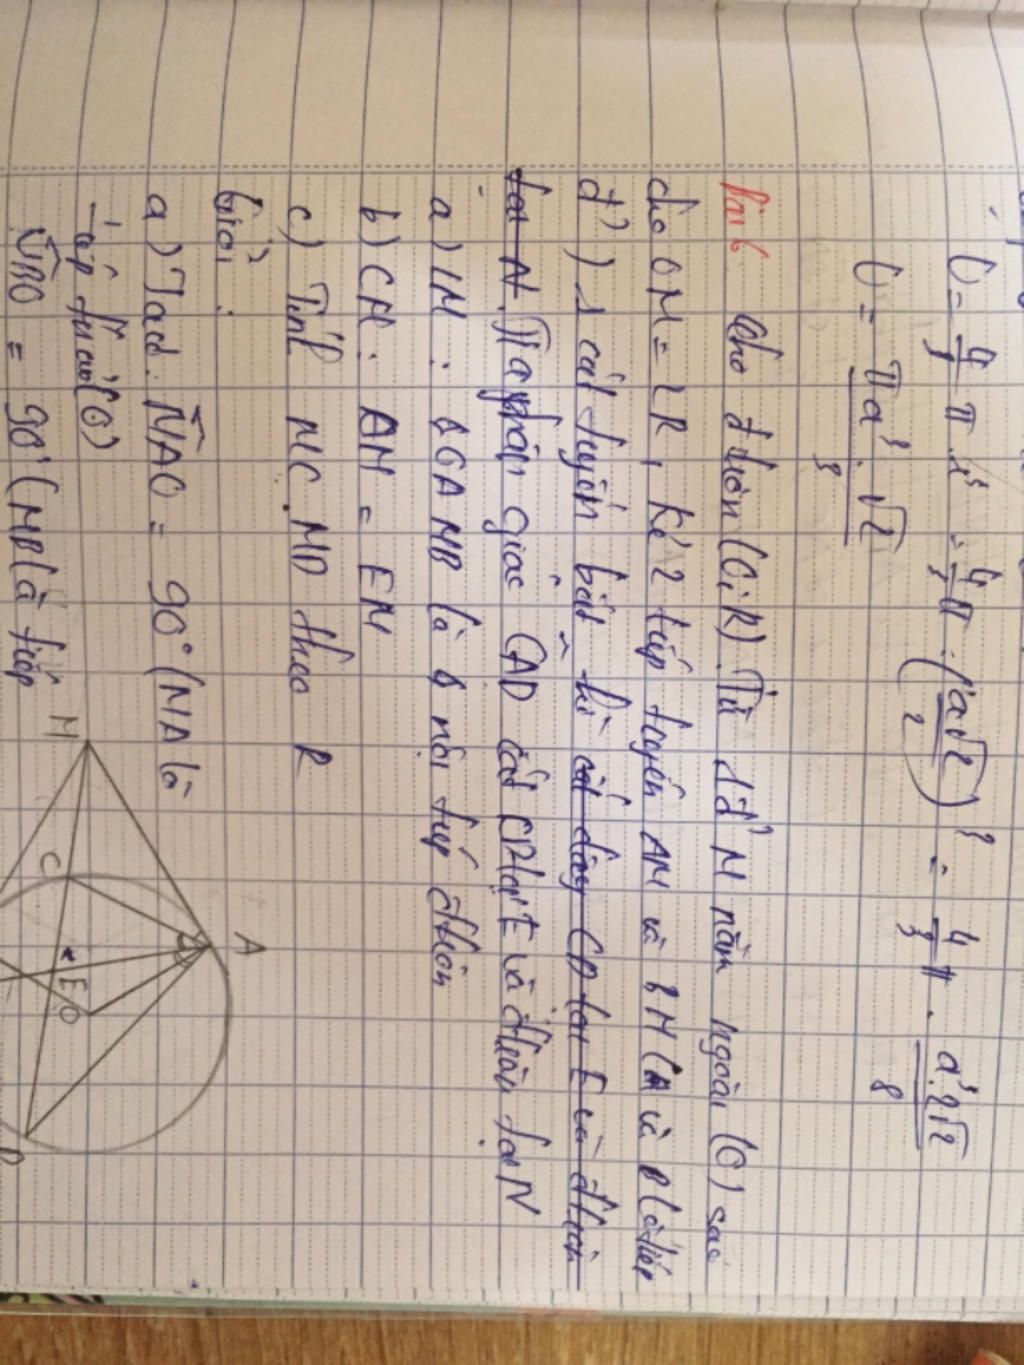 V = 4/3 π r³ = 4/3 π . (a√2/2)³ = 4/3 π . a³.2√2/8
V = πa³.√2/3
Bài 6 Cho đtròn (O;R). Từ 1 đ' M nằm ngoài (O) sao
cho OM = 2R, kẻ 2 tiếp tuyến AM và BM (A và B là tiếp
đ') 1 cát tuyến bất kì cắt
Tia phân giác CAD cắt CD tại E và đtròn tại N
a) CM: AMB là nội tiếp đtròn
b) CM: AM = EM
c) Tính MC.MD theo R
Giải:
a) Ta có: MAO = 90° (MA là
tiếp tuyến (O)
MBO = 90° (MB là tiếp
M
C
A
E
O
D